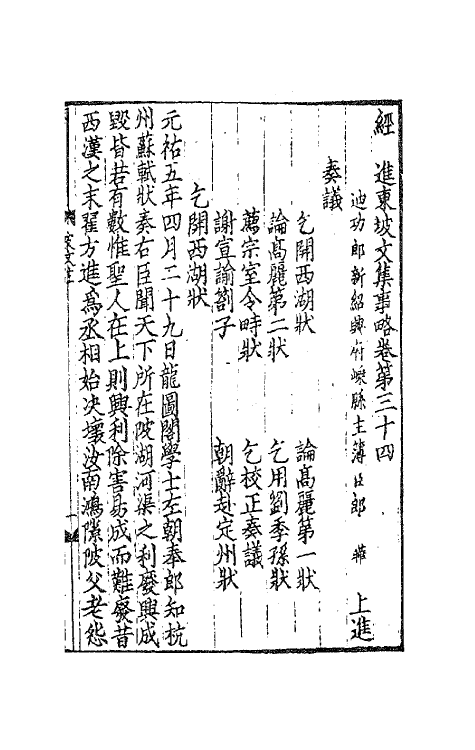 經　進東坡文集事略卷第三十四
迪功郎新紹興府嵊縣主簿臣郎　曄　上進
奏議
乞開西湖狀　論高麗第一狀
論高麗第二狀　乞用劉季孫狀
薦宗室令畤狀　乞校正奏議
謝宣諭劄子　朝辭赴定州狀
乞開西湖狀
元祐五年四月二十九日龍圖閣學士左朝奉郎知杭
州蘇軾狀奏右臣聞天下所在陂湖河渠之利廢興成
毀皆若有數惟聖人在上則興利除害易成而難廢昔
西漢之末翟方進為丞相始决壞汝南鴻隙陂父老怨